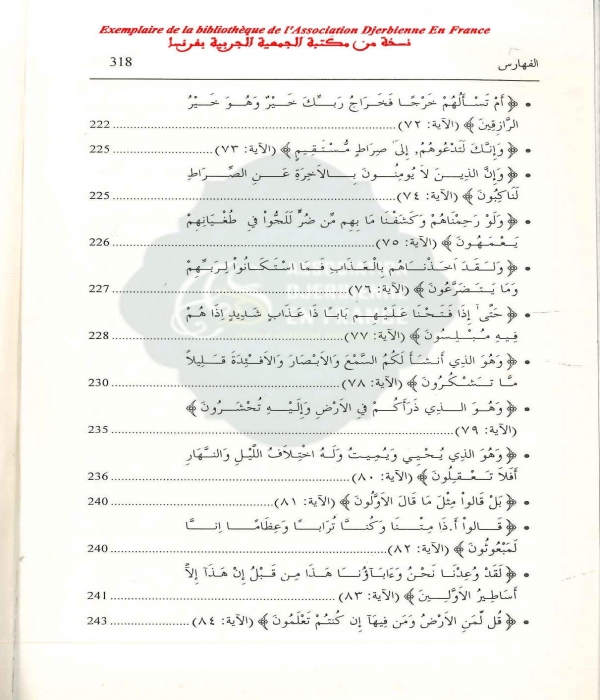 Exemplaire de la bibliothèque de l'Association Djerbienne En France
نسخة من مكتبة الجمعية الجربية بفرنسا
الفهارس 318
• ﴿ أَمْ تَسْأَلُهُمْ خَرْجًا فَخَرَاجُ رَبِّكَ خَيْرٌ وَهُوَ خَيْرُ
الرَّازِقِينَ ﴾ (الآية: ٧٢) ........ 222
• ﴿ وَإِنَّكَ لَتَدْعُوهُمُ, إِلَىٰ صِرَاطٍ مُّسْتَقِيمٍ ﴾ (الآية: ٧٣) ........ 225
• ﴿ وَإِنَّ الذِينَ لاَ يُومِنُونَ بِالاَخِرَةِ عَنِ الصِّرَاطِ
لَنَاكِبُونَ ﴾ (الآية: ٧٤) ........ 225
• ﴿ وَلَوْ رَحِمْنَاهُمْ وَكَشَفْنَا مَا بِهِم مِّن ضُرٍّ لَّلَجُّواْ فِي طُغْيَانِهِمْ
يَعْمَهُونَ ﴾ (الآية: ٧٥) ........ 226
• ﴿ وَلَقَدَ اَخَذْنَاهُم بِالْعَذَابِ فَمَا اسْتَكَانُواْ لِرَبِّهِمْ
وَمَا يَتَضَرَّعُونَ ﴾ (الآية: ٧٦) ........ 227
• ﴿ حَتَّىٰ إِذَا فَتَحْنَا عَلَيْهِم بَابًا ذَا عَذَابٍ شَدِيدٍ إِذَا هُمْ
فِيهِ مُبْلِسُونَ ﴾ (الآية: ٧٧) ........ 228
• ﴿ وَهُوَ الذِي أَنشَأَ لَكُمُ السَّمْعَ وَالاَبْصَارَ وَالاَفْئِدَةَ قَلِيلاً
مَّا تَشْكُرُونَ ﴾ (الآية: ٧٨) ........ 230
• ﴿ وَهُوَ الذِي ذَرَأَكُمْ فِي الاَرْضِ وَإِلَيْهِ تُحْشَرُونَ ﴾
(الآية: ٧٩) ........ 235
• ﴿ وَهُوَ الذِي يُحْيِي وَيُمِيتُ وَلَهُ اخْتِلاَفُ اللَّيْلِ وَالنَّهَارِ
أَفَلاَ تَعْقِلُونَ ﴾ (الآية: ٨٠) ........ 236
• ﴿ بَلْ قَالُواْ مِثْلَ مَا قَالَ الاَوَّلُونَ ﴾ (الآية: ٨١) ........ 240
• ﴿ قَالُواْ أَ.ذَا مِتْنَا وَكُنَّا تُرَابًا وَعِظَامًا اِنَّا
لَمَبْعُوثُونَ ﴾ (الآية: ٨٢) ........ 240
• ﴿ لَقَدْ وُعِدْنَا نَحْنُ وَءَابَاؤُنَا هَذَا مِن قَبْلُ إِنْ هَذَا إِلاَّ
أَسَاطِيرُ الاَوَّلِينَ ﴾ (الآية: ٨٣) ........ 241
• ﴿ قُل لِّمَنِ الاَرْضُ وَمَن فِيهَا إِن كُنتُمْ تَعْلَمُونَ ﴾ (الآية: ٨٤) ........ 243
DJERBIENNE
EN FRANCE